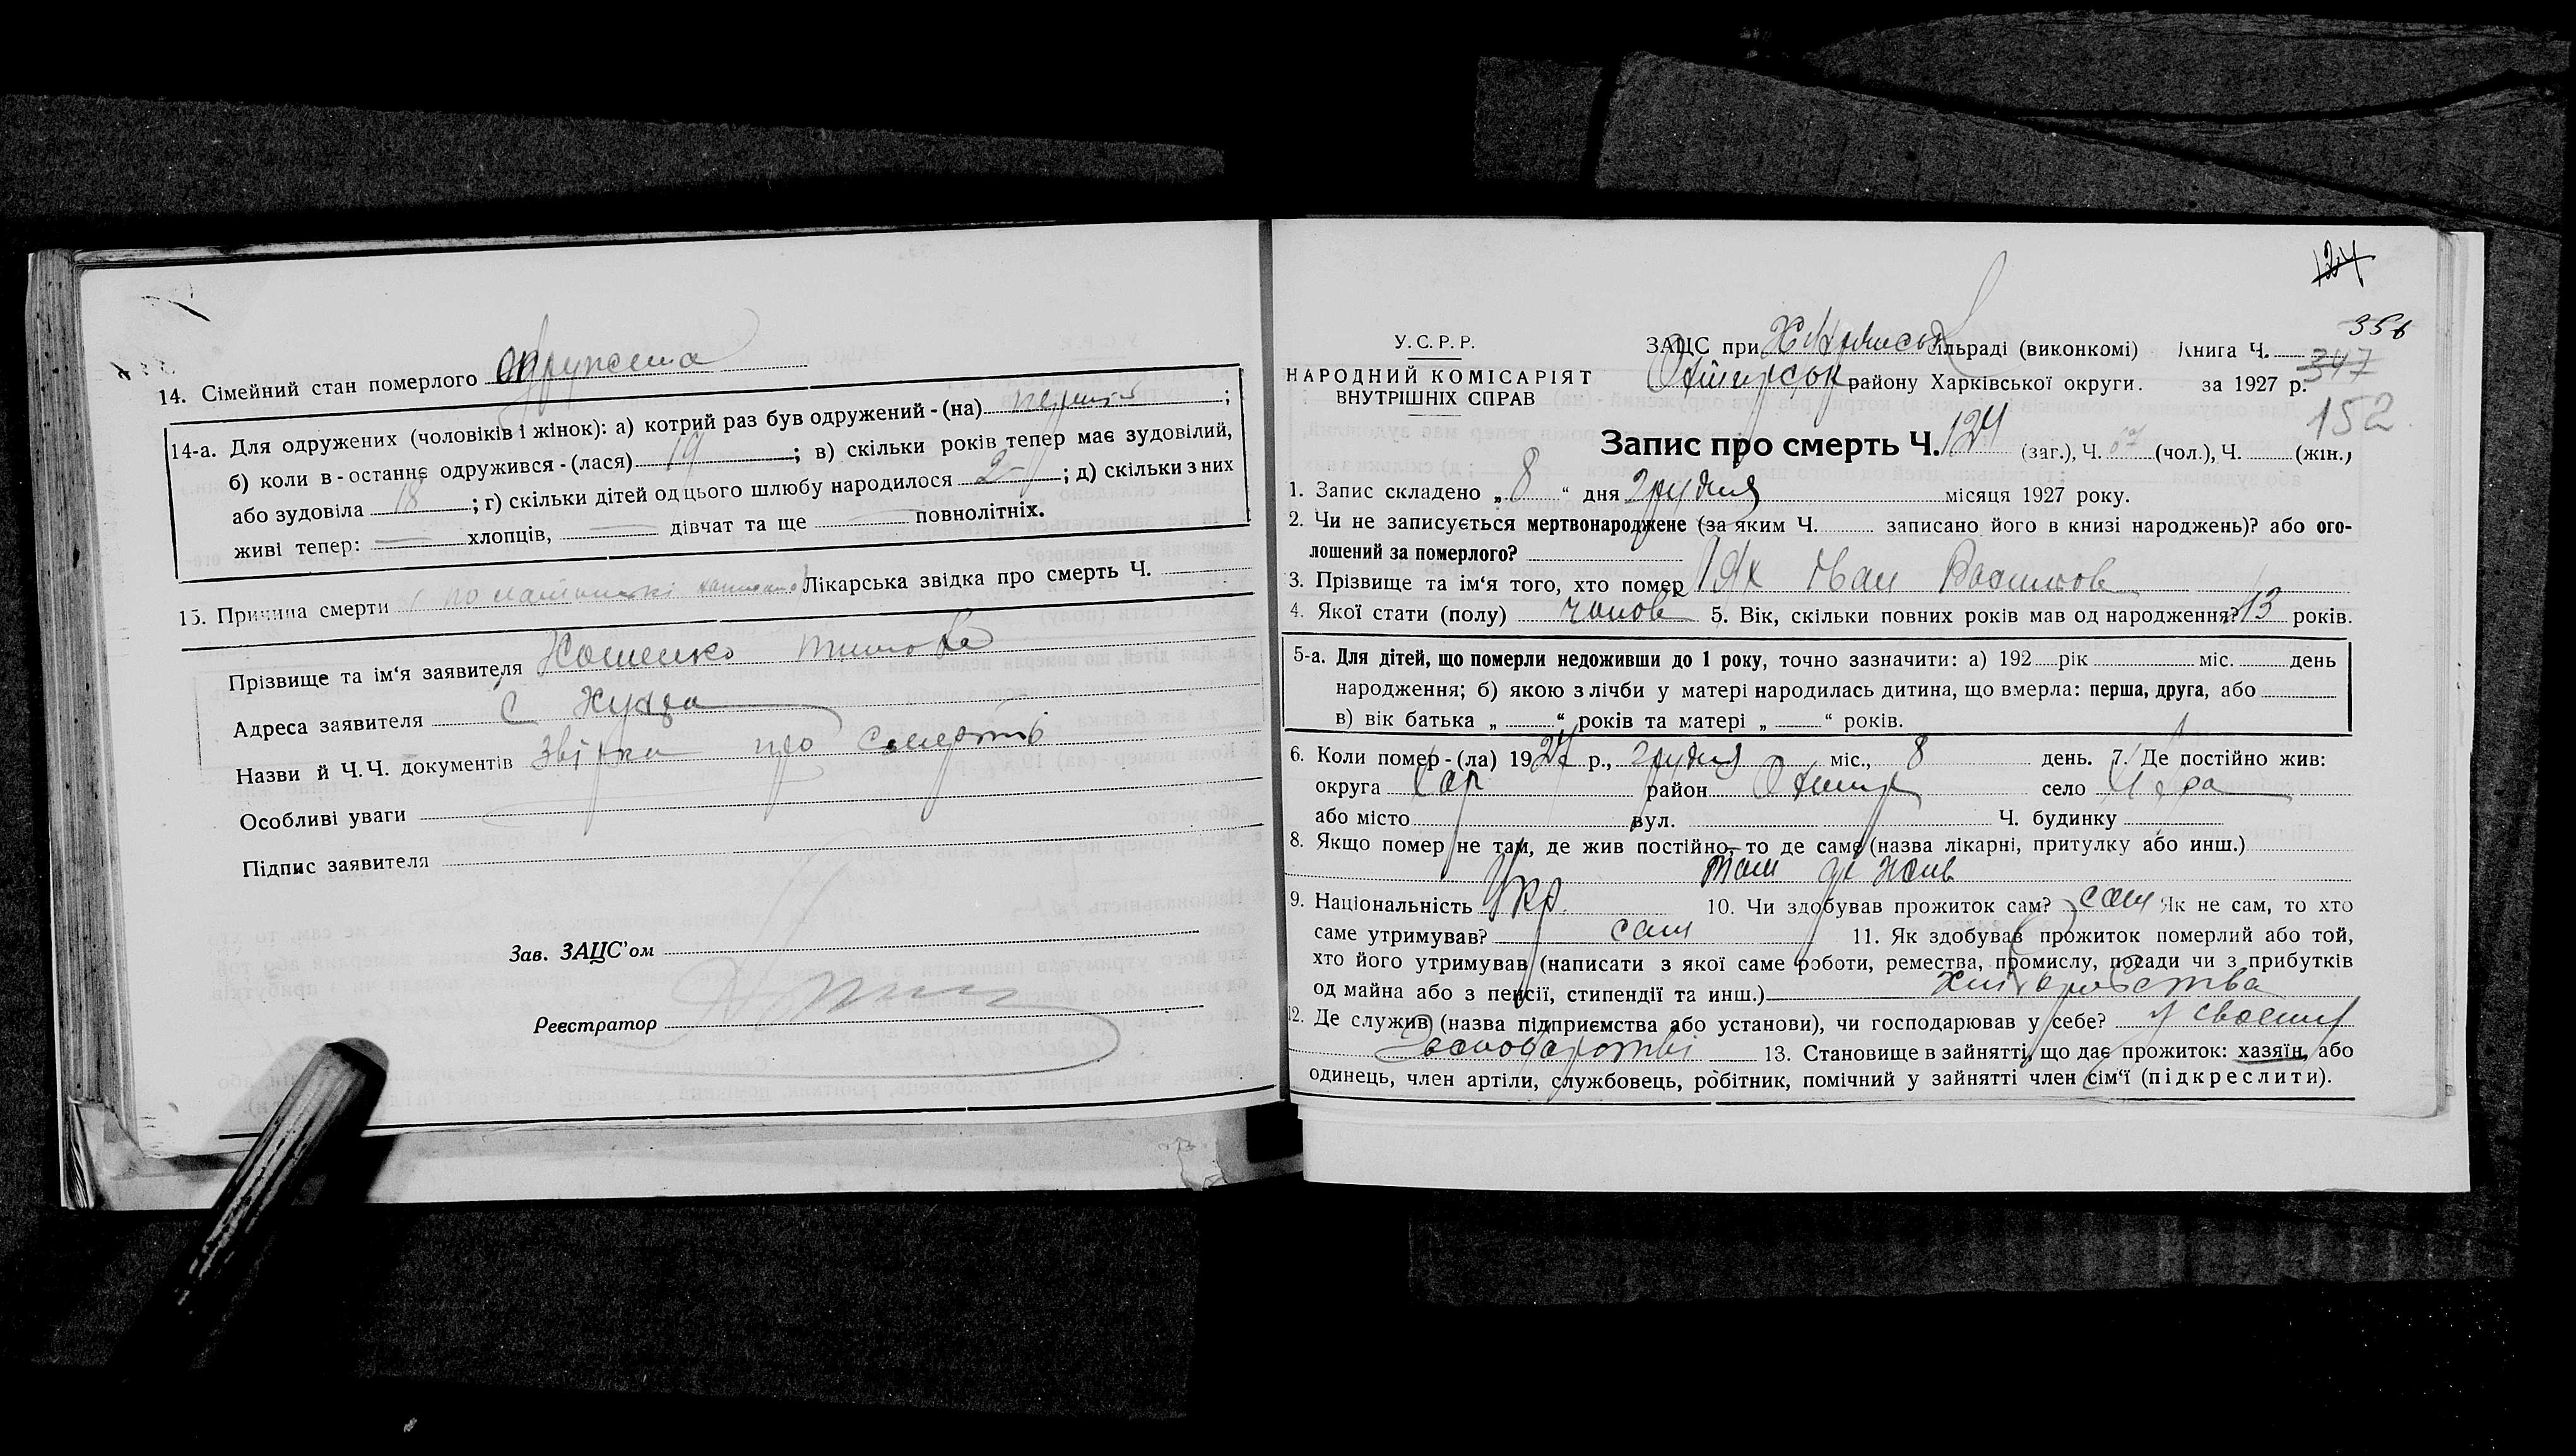 14. Сімейний стан померлого Одружена
14-а. Для одружених (чоловіків і жінок): а) котрий раз був одружений-(на) перший ;
б) коли в-останнє одружився-(лася) 19 ; в) скільки років тепер має зудовілий,
або зудовіла 18 ; г) скільки дітей од цього шлюбу народилося 2 ; д) скільки з них
живі тепер: — хлопців, — дівчат та ще повнолітніх.
15. Причина смерти Лікарська звідка про смерть Ч.
Прізвище та ім'я заявителя
Адреса заявителя С
Назви й Ч.Ч. документів про смерть
Особливі уваги
Підпис заявителя
Зав. ЗАЦС'ом
Реєстратор
124
356
У.С.Р.Р.
НАРОДНИЙ КОМІСАРІЯТ
ВНУТРІШНІХ СПРАВ
ЗАЦС при сільраді (виконкомі) Книга Ч. 347
району Харківської округи. за 1927 р.
152
Запис про смерть Ч. 124 (заг.), Ч. 67 (чол.), Ч. (жін.)
1. Запис складено „ 8 “ дня грудня місяця 1927 року.
2. Чи не записується мертвонароджене (за яким Ч. записано його в книзі народжень)? або ого-
лошений за померлого?
3. Прізвище та ім'я того, хто помер Іван
4. Якої стати (полу) чолов 5. Вік, скільки повних років мав од народження? 13 років.
5-а. Для дітей, що померли недоживши до 1 року, точно зазначити: а) 192 рік міс. день
народження; б) якою з лічби у матері народилась дитина, що вмерла: перша, друга, або
в) вік батька „ “ років та матері „ “ років.
6. Коли помер-(ла) 1927 р., грудня міс., 8 день. 7. Де постійно жив:
округа Хар район село
або місто вул. Ч. будинку
8. Якщо помер не там, де жив постійно, то де саме (назва лікарні, притулку або инш.)
Там де жив
9. Національність Укр. 10. Чи здобував прожиток сам? сам Як не сам, то хто
саме утримував? сам 11. Як здобував прожиток померлий або той,
хто його утримував (написати з якої саме роботи, ремества, промислу, посади чи з прибутків
од майна або з пенсії, стипендії та инш.) хліборобства
12. Де служив (назва підприємства або установи), чи господарював у себе? у своєму
господарстві 13. Становище в зайнятті, що дає прожиток: хазяїн, або
одинець, член артіли, службовець, робітник, помічний у зайнятті член сім'ї (підкреслити).